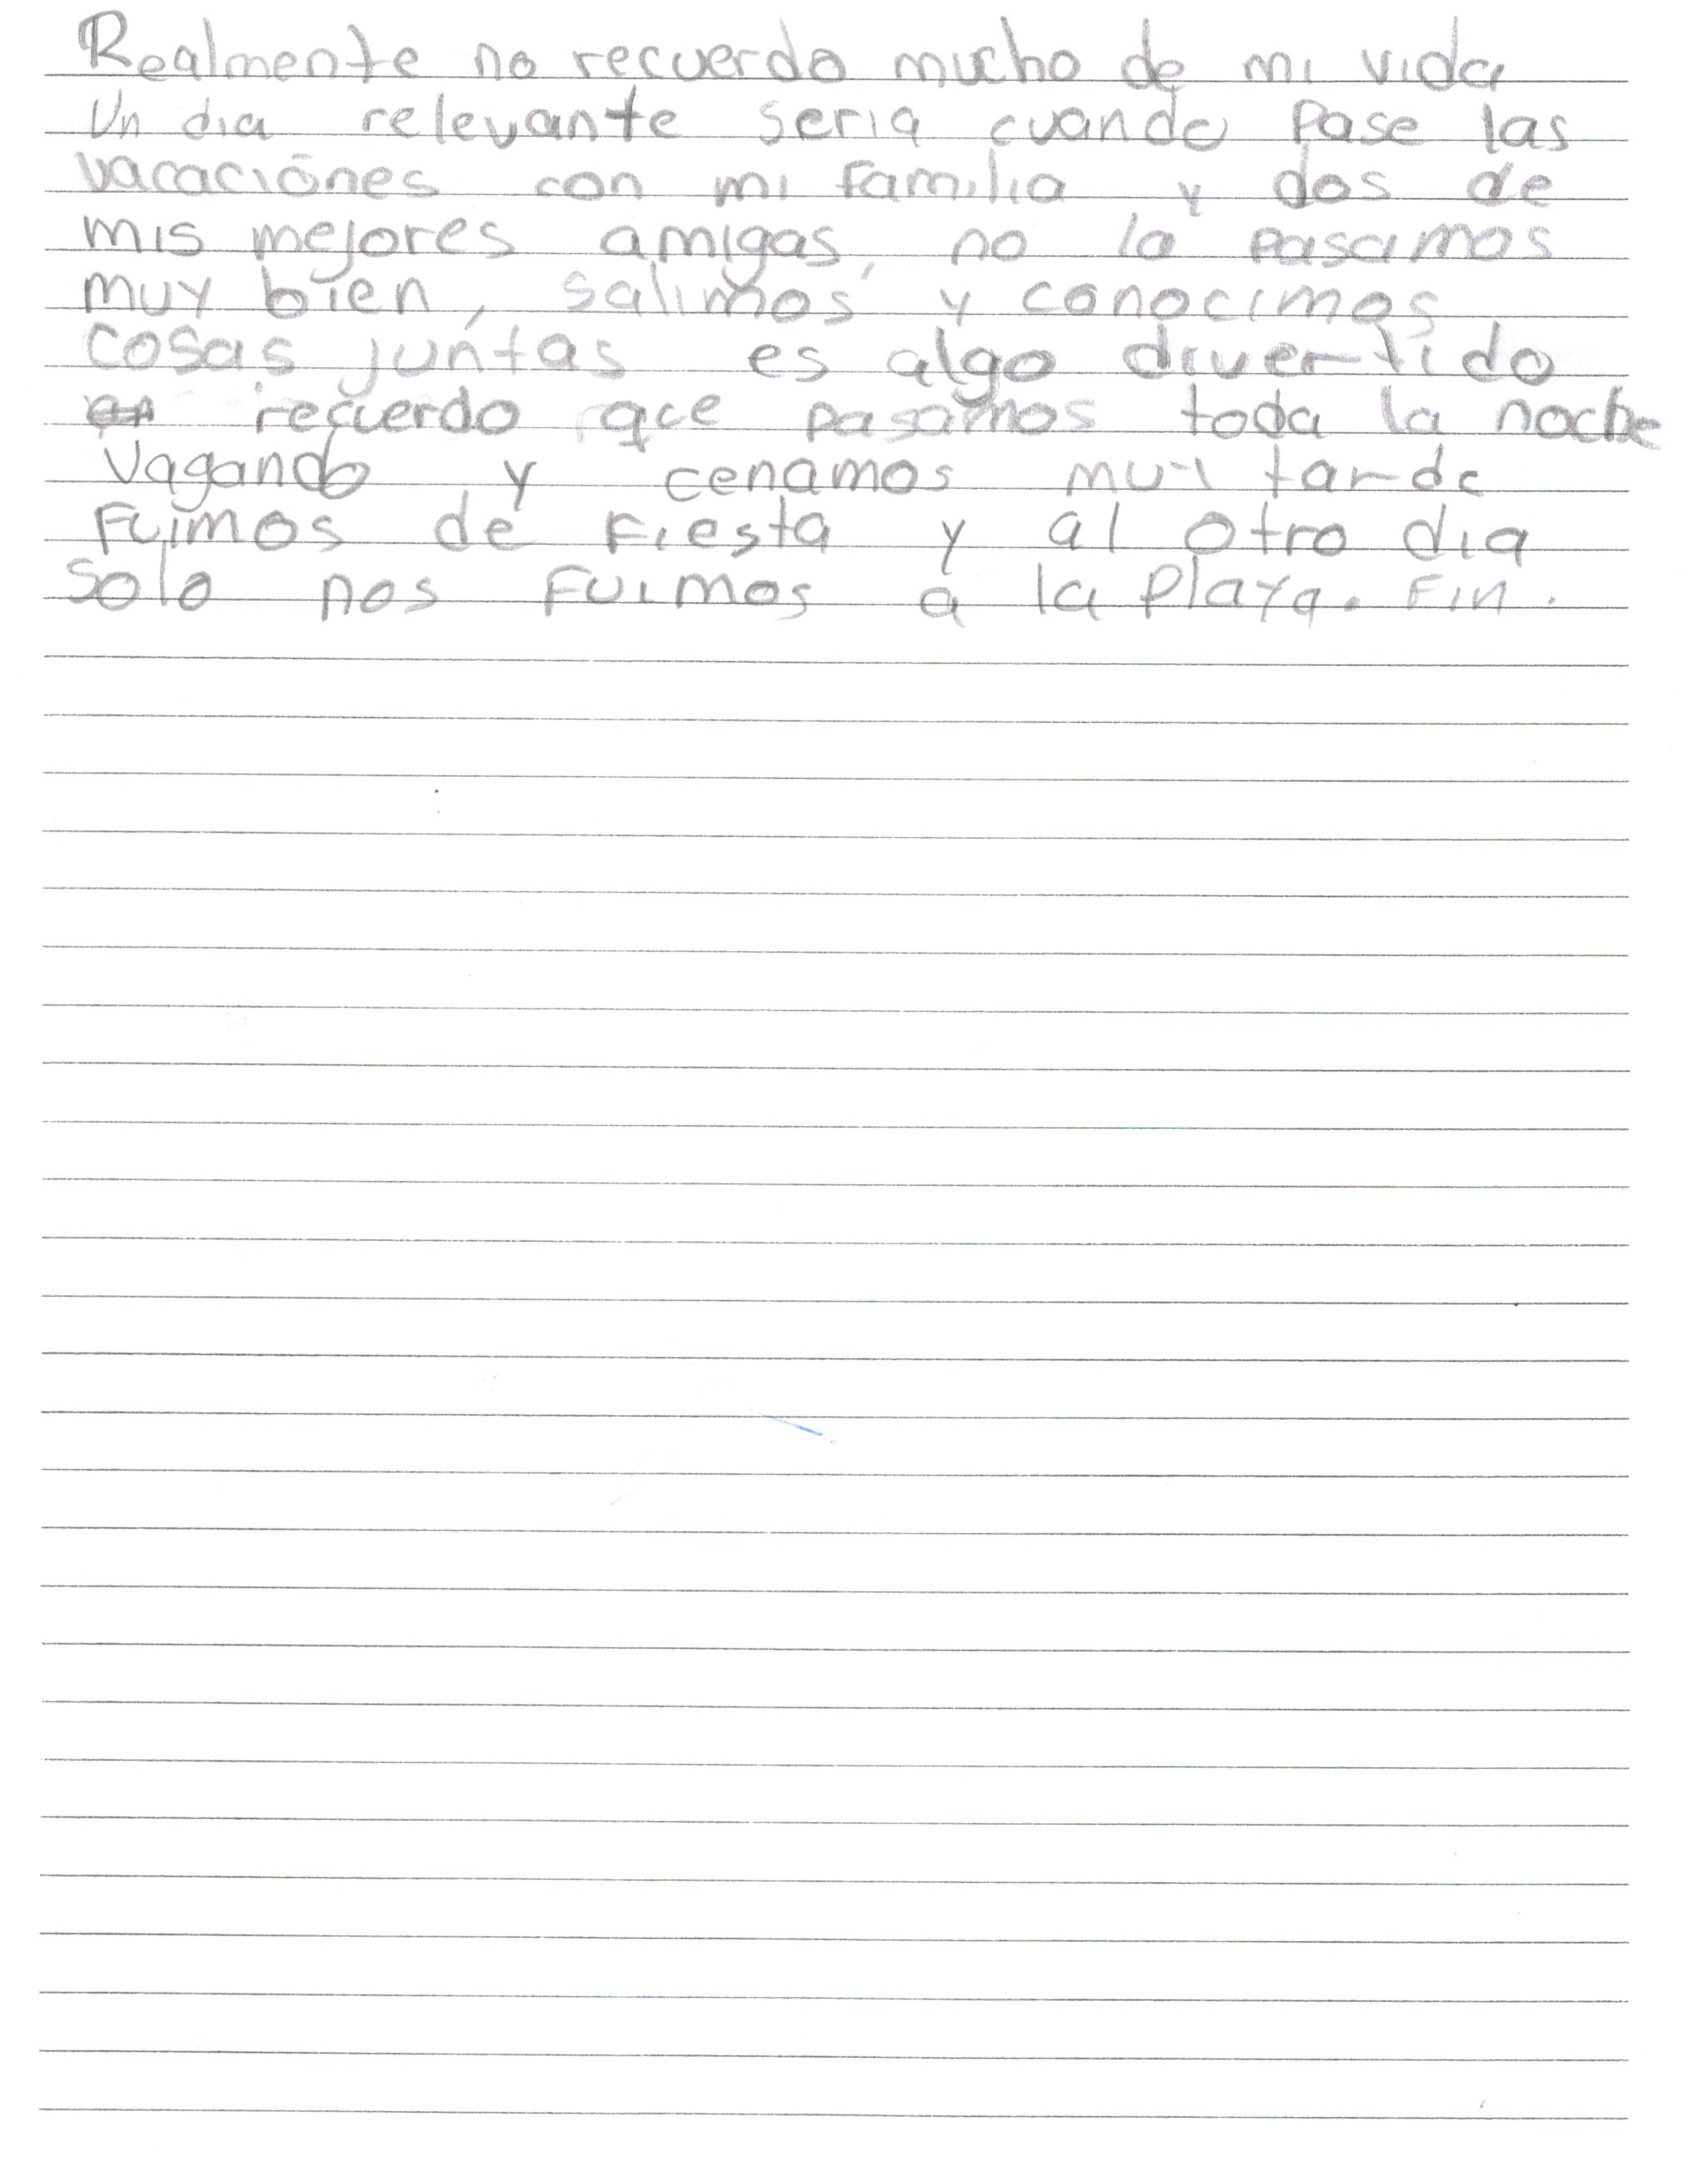 Realmente no recuerdo mucho de mi vida
Un dia relevante seria cuando pase las
vacaciónes con mi familia y dos de
mis mejores amigas, no la pasamos
muy bien, salimos y conocimos
cosas juntas es algo divertido
recuerdo que pasamos toda la noche
vagando y cenamos muy tarde
Fuimos de Fiesta y al otro dia
solo nos Fuimos a la Playa. Fin.